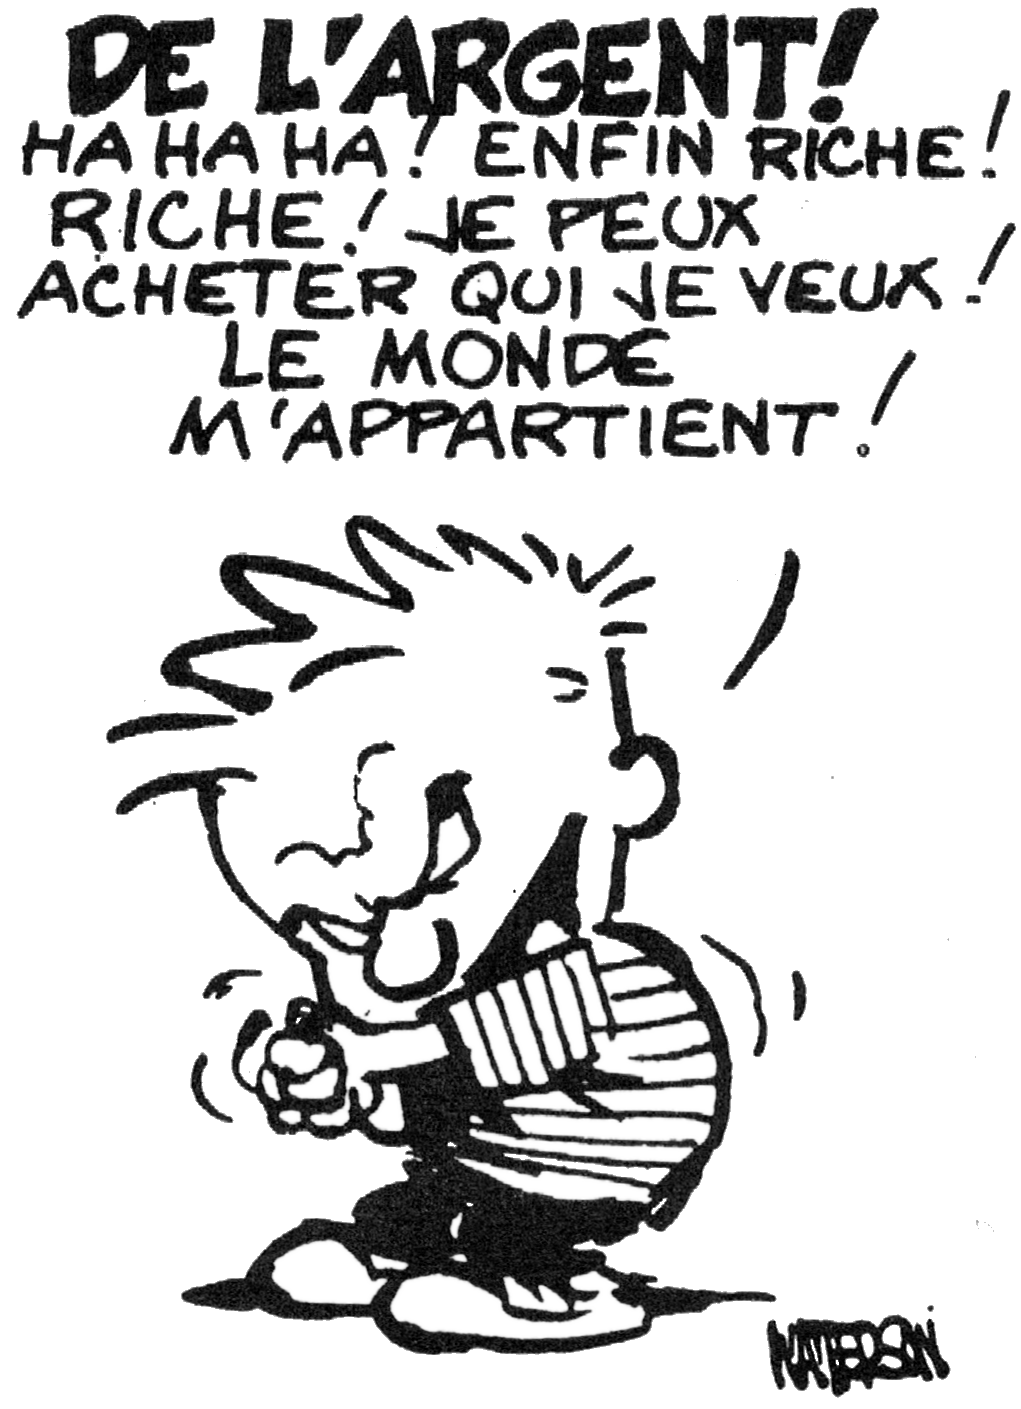 DE L'ARGENT!
HA HA HA! ENFIN RICHE!
RICHE! JE PEUX
ACHETER QUI JE VEUX!
LE MONDE
M'APPARTIENT!
WATTERSON